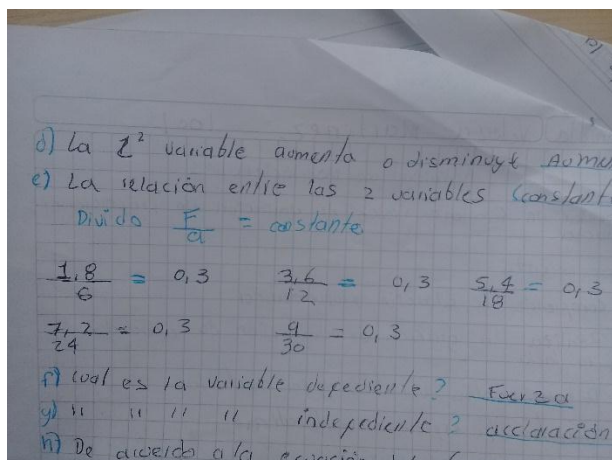 d) La 2² variable aumenta o disminuye Aume
e) La relación entre las 2 variables (constant
Divido F/a = constante.
1,8/6 = 0,3 3,6/12 = 0,3 5,4/18 = 0,3
7,2/24 = 0,3 9/30 = 0,3
f) cual es la variable depediente? Fuerza
g) " " " " indepediente? accelaración
h) De acuerdo a la ecuación